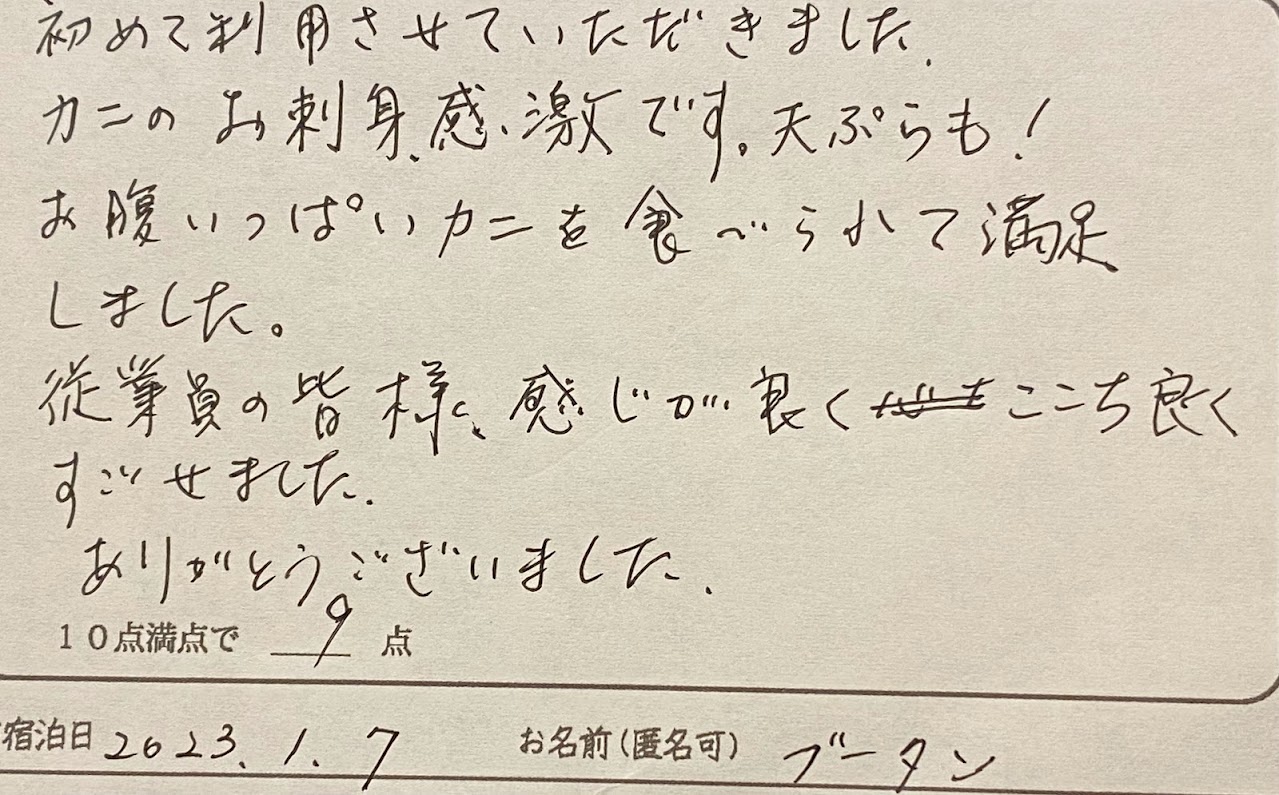 初めて利用させていただきました.
カニのお刺身、感激です。天ぷらも!
お腹いっぱいカニを食べられて満足
しました。
従業員の皆様、感じが良く ここち良く
すごせました.
ありがとうございました.
10点満点で 9 点
宿泊日 2023.1.7 お名前(匿名可) ブータン